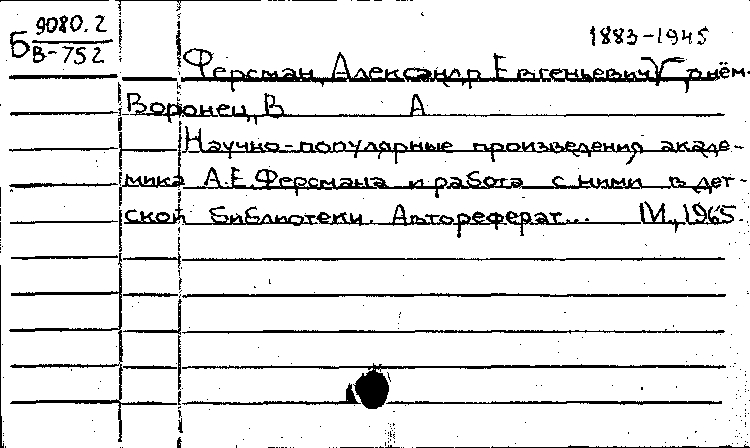 Б 9080.2
В-752
1883-1945
Ферсман, Александр Евгеньевич
Воронец, В А
Научно-популярные произведения акаде-
мика А.Е.Ферсмана и работа с ними в дет-
ской библиотеки. Автореферат... М., 1965.